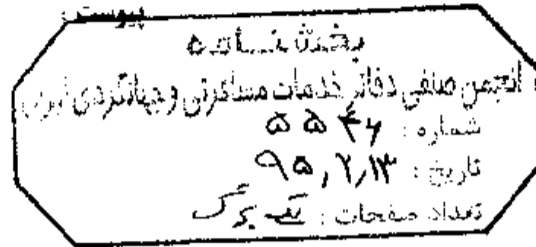 پیوست:
بخشنامه
انجمن صنفی دفاتر خدمات مسافرتی و جهانگردی ایران
شماره: ۵۵۴۶
تاریخ: ۹۵٫۲٫۱۳
تعداد صفحات: یک برگ